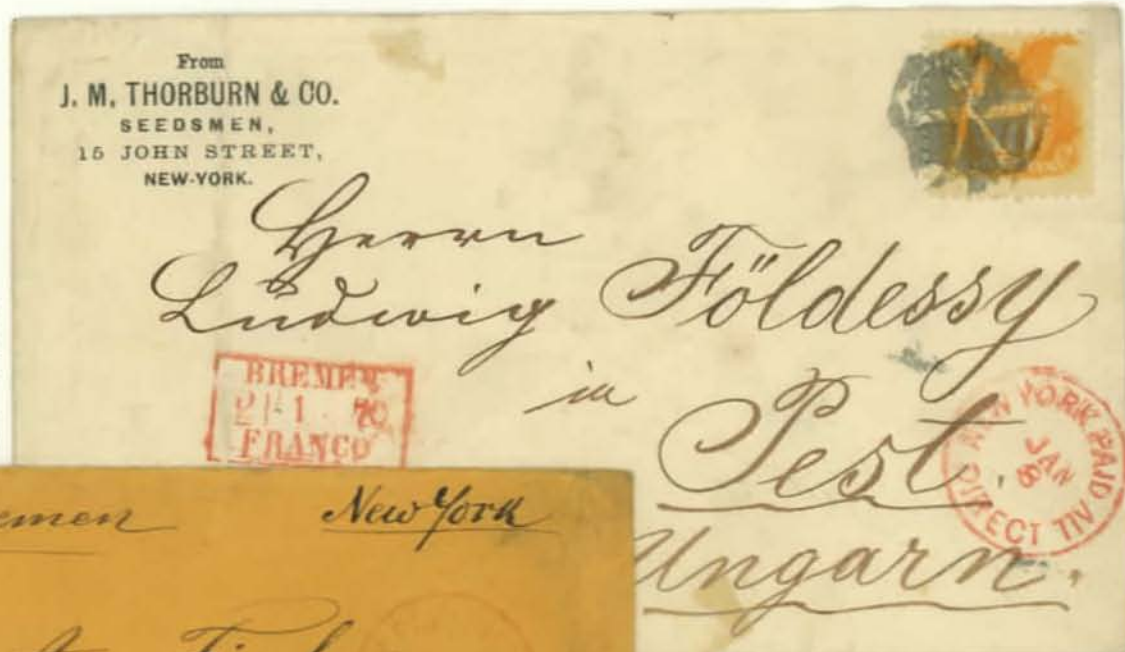 From
J. M. THORBURN & CO.
SEEDSMEN,
15 JOHN STREET,
NEW-YORK.
Herrn
Ludwig Földessy
in
Pest.
Ungarn.
BREMEN
21 1 70
FRANCO
NEW YORK PAID ALL DIRECT
JAN
8
New York